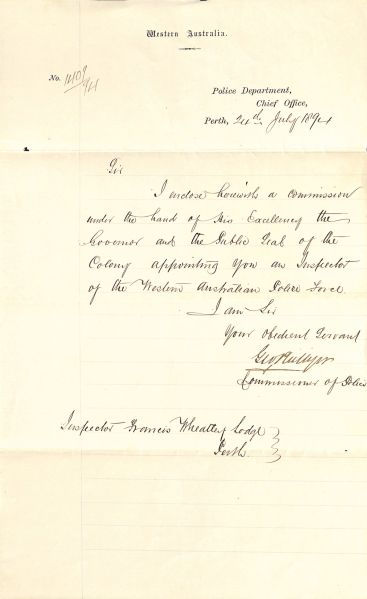 Western Australia.
No. 1409/94
Police Department,
Chief Office,
Perth, 24th July 1894
Sir
I enclose herewith a commission
under the hand of His Excellency the
Governor and the Public Seal of the
Colony appointing you an Inspector
of the Western Australian Police Force
I am Sir
Your Obedient Servant
Geo Phillips
Commissioner of Police
Inspector Francis Wheatley Lodge
Perth